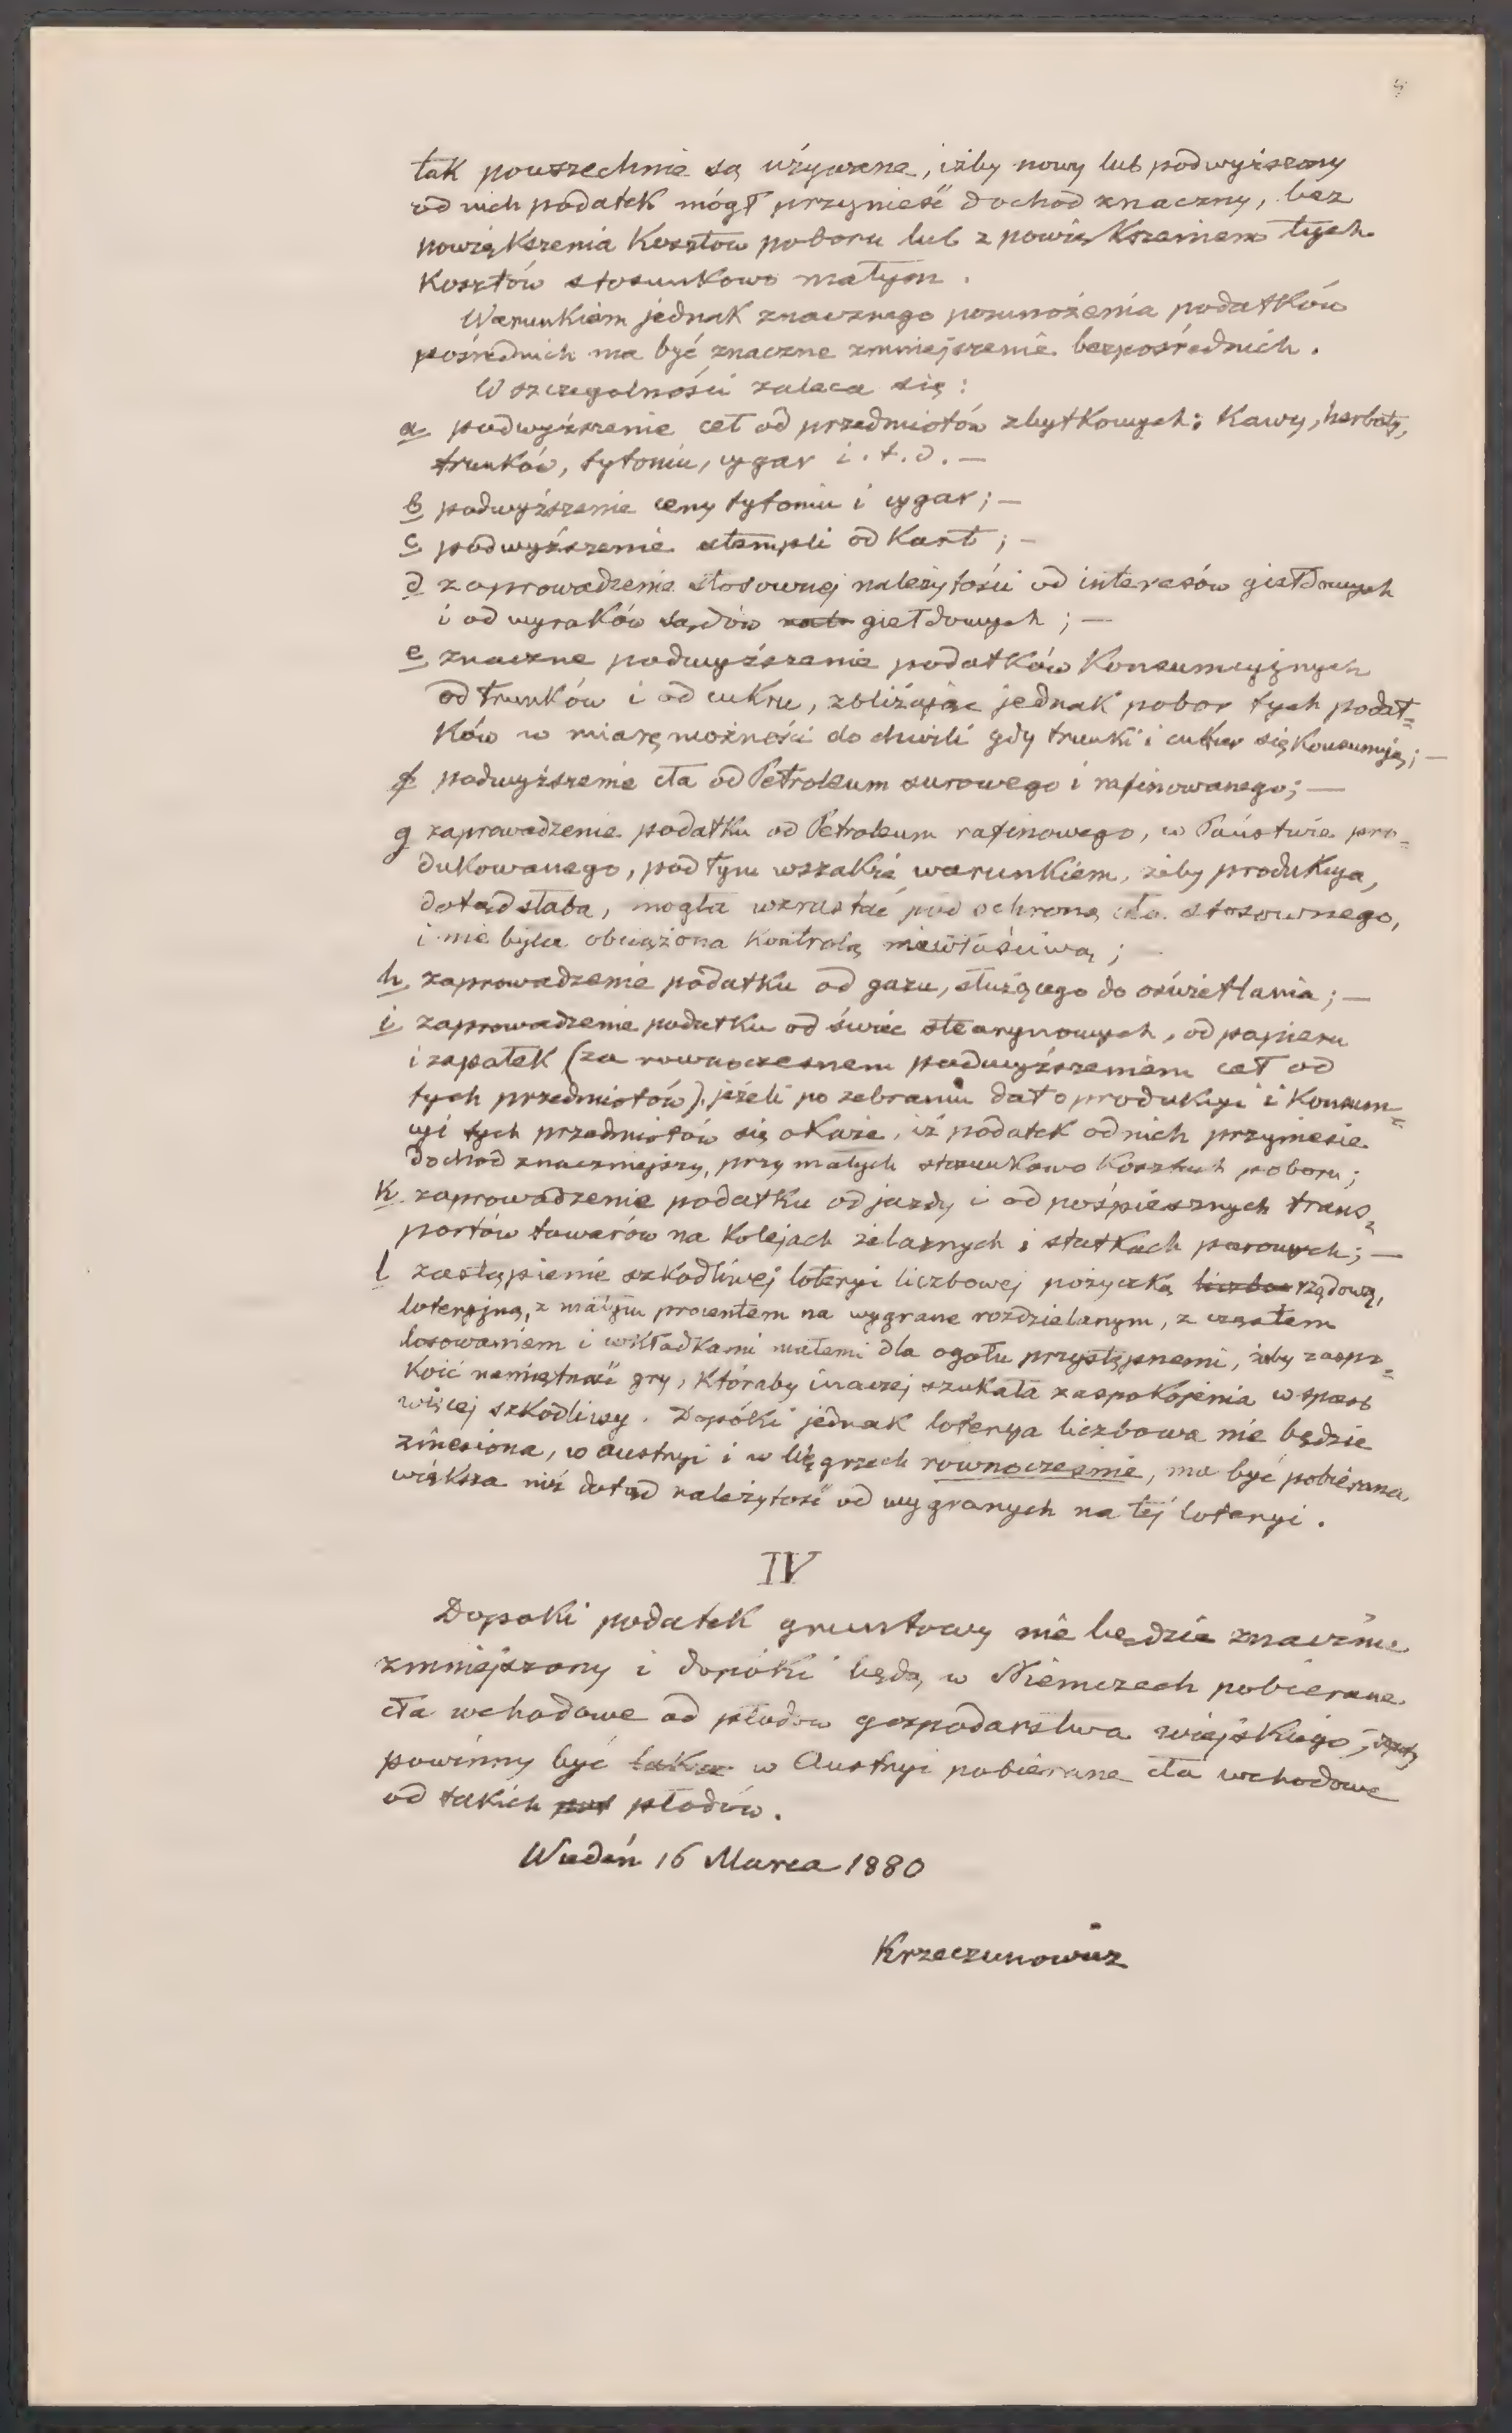 tak powszechnie są używane, iżby nowy lub podwyższony
od nich podatek mógł przynieść dochod znaczny, bez
powiększenia Kosztow poboru lub z powiększeniem tych
Kosztów stosunkowo małym.
Warunkiem jednak znacznego pomnożenia podatków
pośrednich ma być znaczne zmniejszenie bezpośrednich.
W szczegolności zaleca się:
a podwyższenie ceł od przedmiotów zbytkowych: Kawy, herbaty,
trunków, tytoniu, cygar i.t.d. —
b podwyższenie ceny tytoniu i cygar; —
c podwyższenie stempli od Kart; —
d zaprowadzenie stosownej należytości od interesów giełdowych
i od wyroków sądów giełdowych; —
e znaczne podwyższenie podatków Konsumcyjnych
od trunków i od cukru, zbliżając jednak pobor tych podat=
ków w miarę możności do chwili gdy trunki i cukier się Konsumują; —
f podwyższenie cła od Petroleum surowego i rafinowanego; —
g zaprowadzenie podatku od Petroleum rafinowego, w Państwie pro=
dukowanego, pod tym wszakże warunkiem, żeby produkcya,
dotąd słaba, mogła wzrastać pod ochroną cła stosownego,
i nie była obciążona Kontrolą niewłaściwą;
h zaprowadzenie podatku od gazu, służącego do oświetlania; —
i zaprowadzenie podatku od świec stearynowych, od papieru
i zapałek (za rownoczesnem podwyższeniem ceł od
tych przedmiotów) jeżeli po zebraniu dat o produkcyi i Konsum=
cyi tych przedmiotów się okaże, iż podatek od nich przyniesie
dochod znaczniejszy, przy małych stosunkowo Kosztach poboru;
K zaprowadzenie podatku od jazdy i od pośpiesznych trans=
portów towarów na Kolejach żelaznych i statkach parowych; —
l zastąpienie szkodliwej loteryi liczbowej pożyczką liczbow rządową,
loteryjną, z małym procentem na wygrane rozdzielanym, z częstem
losowaniem i wkładkami małemi dla ogołu przystępnemi, żeby zaspo=
Koić namiętność gry, Któraby inaczej szukała zaspokojenia w sposob
więcej szkodliwy. Dopóki jednak loterya liczbowa nie będzie
zniesiona, w Austryi i w Węgrzech rownocześnie, ma być pobierana
większa niż dotąd należytość od wygranych na tej loteryi.
IV
Dopoki podatek gruntowy nie będzie znacznie
zmniejszony i dopóki będą w Niemczech pobierane
cła wchodowe od płodow gospodarstwa wiejskiego,
powinny być także w Austryi pobierane cła wchodowe
od takich płodów.
Wiedeń 16 Marca 1880
Krzeczunowicz